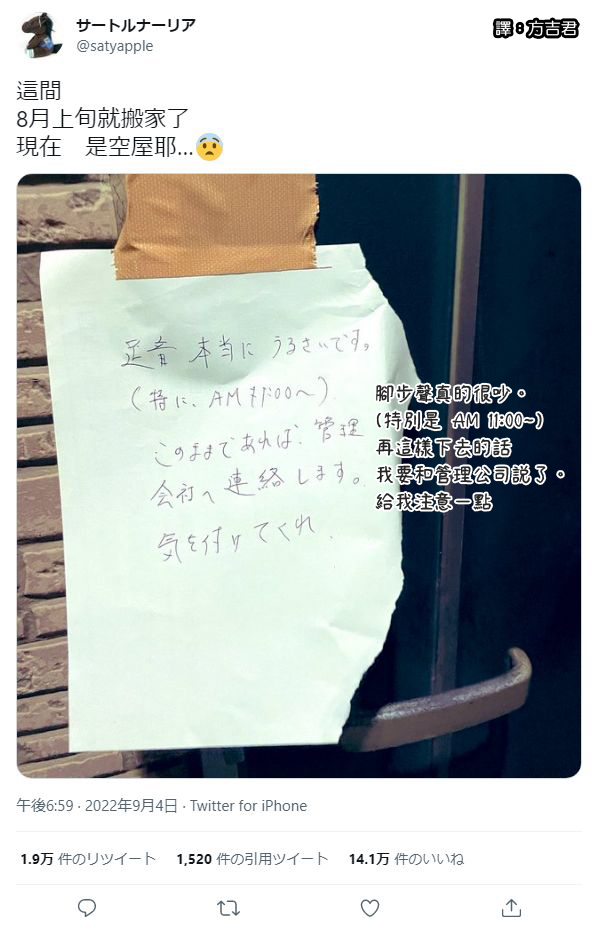 サートルナーリア
@satyapple
譯:方吉君
這間
8月上旬就搬家了
現在　是空屋耶…😨
足音 本当に うるさいです。
(特に、AM 11:00〜)
このままであれば、管理
会社へ 連絡します。
気を付けてくれ、
腳步聲真的很吵。
(特別是 AM 11:00~)
再這樣下去的話
我要和管理公司說了。
給我注意一點
午後6:59 · 2022年9月4日 · Twitter for iPhone
1.9万 件のリツイート　1,520 件の引用ツイート　14.1万 件のいいね